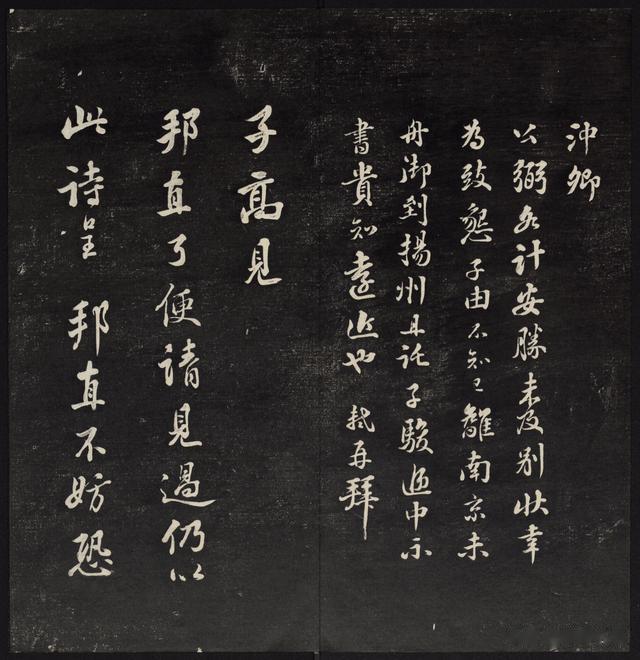 沖卿
公弼各計安勝未及別狀幸
為致懇子由不知已離南京未
舟御到揚州且託子駿遞中示
書貴知遠近也軾再拜
子高見
邦直了便請見過仍以
此詩呈邦直不妨恐